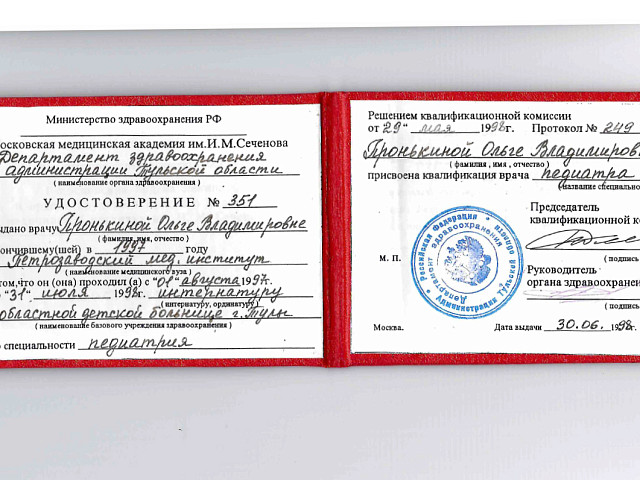 Министерство здравоохранения РФ
осковская медицинская академия им.И.М.Сеченова
Департамент здравоохранения
администрации Тульской области
( наименование органа здравоохранения )
УДОСТОВЕРЕНИЕ № 351
ыдано врачу Пронькиной Ольге Владимировне
( фамилия, имя, отчество )
ончившему(ей) в 1997 году
Петрозаводский мед. институт
( наименование медицинского вуза )
том,что он (она) проходил (а) с "01" августа 1997.
"31" июля 1998г. интернатуру
( интернатуру, ординатуру )
областной детской больнице г. Тулы
( наименование базового учреждения здравоохранения )
о специальности педиатрия
Решением квалификационной комиссии
от "29" мая 1998г. Протокол № 249
Пронькиной Ольге Владимировн
( фамилия , имя , отчество )
присвоена квалификация врача педиатра
(название специально
Председатель
квалификационной ко
( подпись
М. П.
Руководитель
органа здравоохранен
( подпись
Москва. Дата выдачи 30.06. 1998г.
Российская Федерация
Администрация Тульской области
Департамент здравоохранения